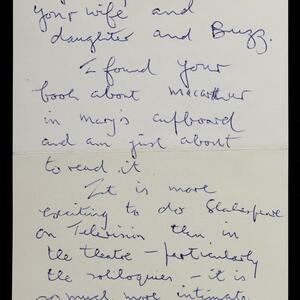 your wife and
daughter and Buzz.
I found your
book about macarthur
in mary's cupboard
and am just about
to read it.
It is more
exciting to do Shakespeare
on Television than in
the theatre – particularly
the soliloquies – it is
so much more intimate